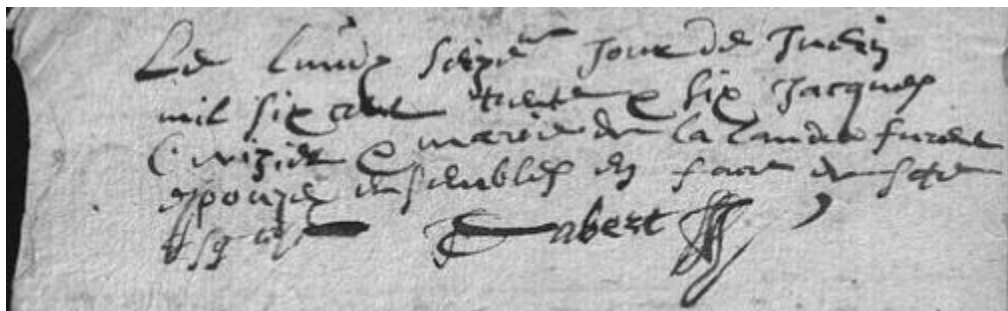 Le lundy seizie^me jour de Juin
mil six cent trente e six Jacques
Cuvizier e marie de la lande furent
espouzez ensembles en face de ste
Esglise